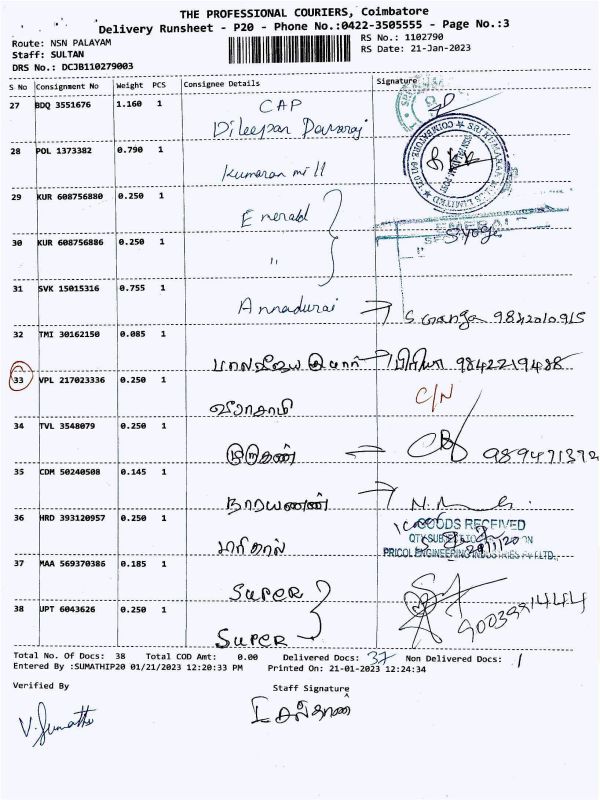 THE PROFESSIONAL COURIERS, Coimbatore
Delivery Runsheet - P20 - Phone No.:0422-3505555 - Page No.:3
Route: NSN PALAYAM
RS No.: 1102790
Staff: SULTAN
RS Date: 21-Jan-2023
DRS No.: DCJB110279003
S No Consignment No Weight PCS Consignee Details Signature
27 BDQ 3551676 1.160 1 CAP
Dileepan
28 POL 1373382 0.790 1
Kumaran mill
29 KUR 608756880 0.250 1 Emerald
EMERALD
30 KUR 608756886 0.250 1 "
31 SVK 15015316 0.755 1 Annadurai
9842010915
32 TMI 30162150 0.085 1
பிரியா 9842219488
33 VPL 217023336 0.250 1 C/N
வீராசாமி
34 TVL 3548079 0.250 1
முருகன் 989471372
35 CDM 50240508 0.145 1
நாராயணன்
36 HRD 393120957 0.250 1 GOODS RECEIVED
PRICOL ENGINEERING INDUSTRIES PVT LTD.
37 MAA 569370386 0.185 1 SUPER
38 UPT 6043626 0.250 1 SUPER
Total No. Of Docs: 38 Total COD Amt: 0.00 Delivered Docs: 37 Non Delivered Docs: 1
Entered By :SUMATHIP20 01/21/2023 12:20:33 PM Printed On: 21-01-2023 12:24:34
Verified By Staff Signature
V. Sumathi